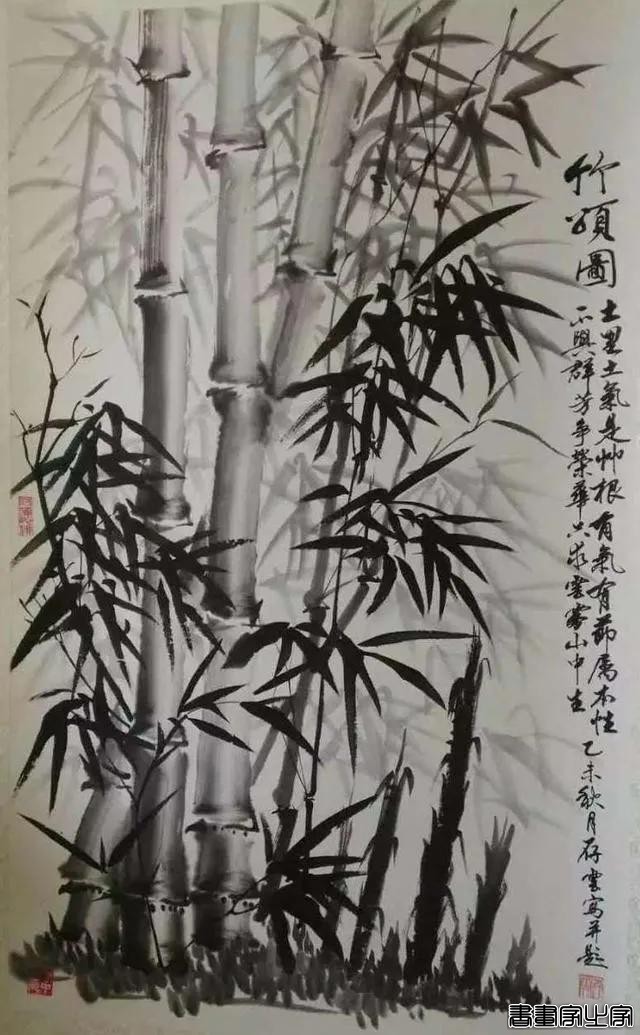 竹頌圖
土里土氣是艸根有氣有節屬本性
不與群芳爭榮華只求雲霧山中生
乙未秋月存雲寫并題
書畫家之家